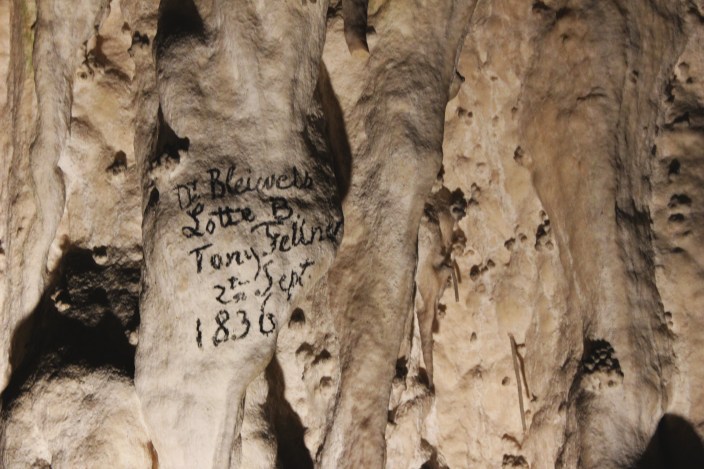 Dr Bleiweis
Lotte B.
Tony Fellner
2ten Sept
1836